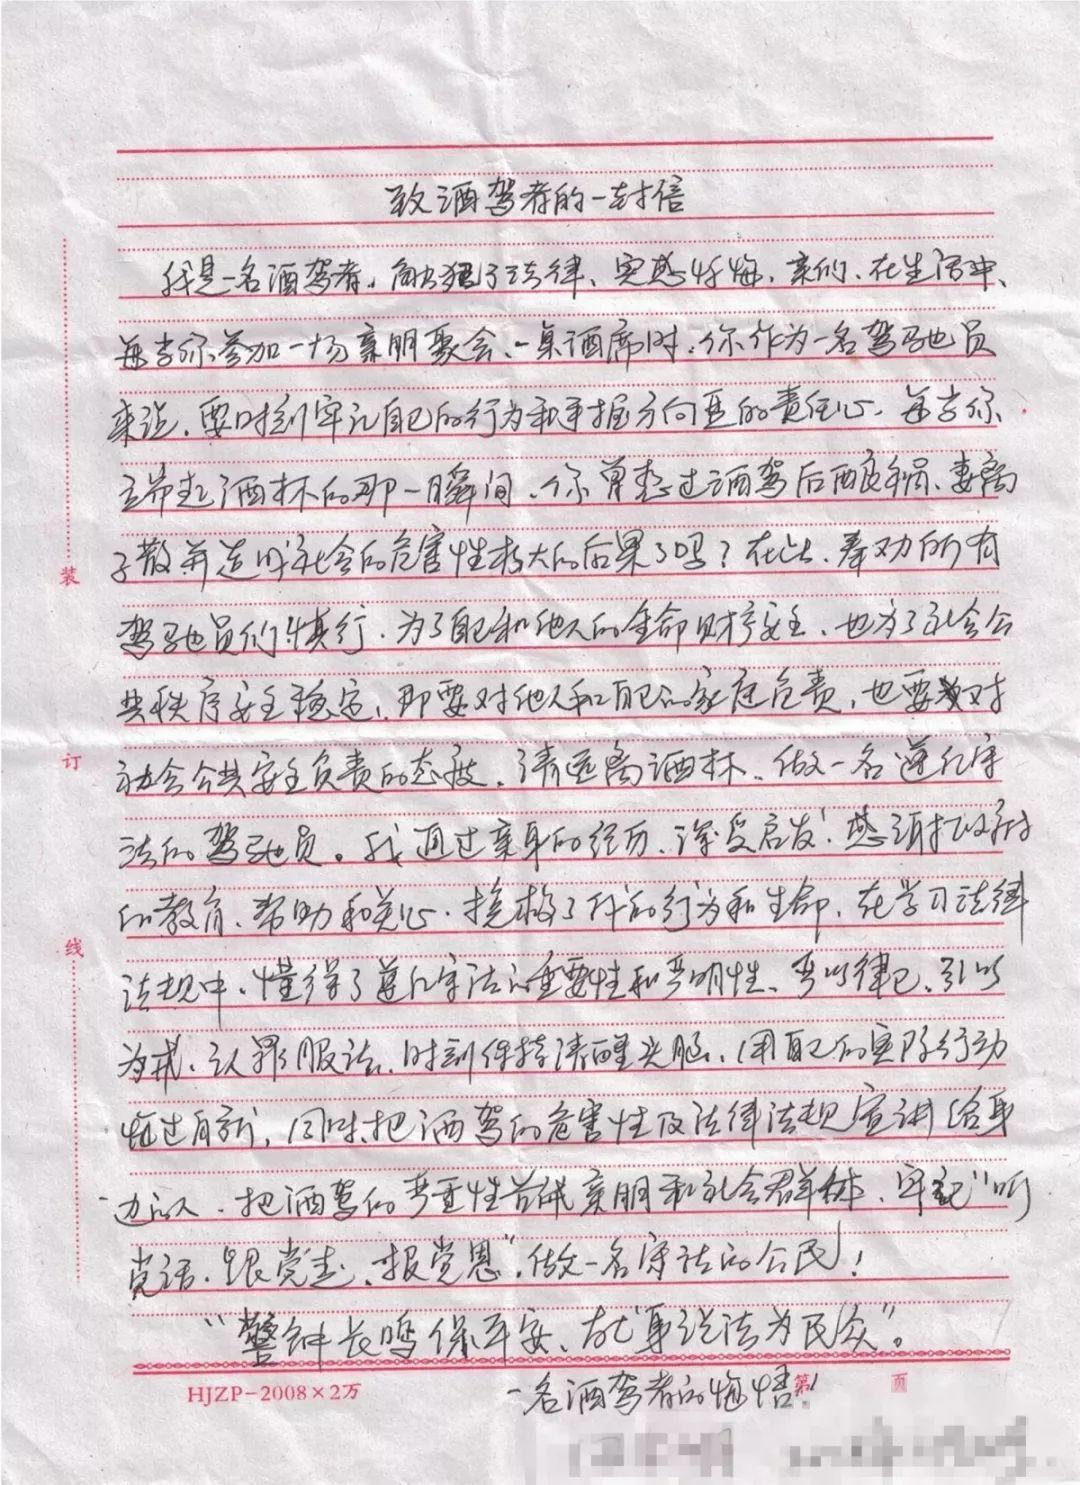 致酒驾者的一封信
我是一名酒驾者，触犯了法律、实感忏悔，亲们、在生活中、
每当你参加一场亲朋聚会、一桌酒席时，你作为一名驾驶员
来说，要时刻牢记自己的行为和掌握方向盘的责任心，每当你
端起酒杯的那一瞬间，你曾想过酒驾后酿良祸、妻离
子散并造成社会的危害性极大的后果了吗？在此、奉劝所有
驾驶员们慎行，为了自己和他人的生命财产安全、也为了社会公
共秩序安全稳定，即要对他人和自己的家庭负责，也要对
社会公共安全负责的态度，请远离酒杯、做一名遵纪守
法的驾驶员。我通过亲身的经历、深受启发！感谢政府
的教育、帮助和关心，挽救了我的行为和生命，在学习法律
法规中，懂得了遵纪守法的重要性和严明性、严以律己、引以
为戒、认罪服法、时刻保持清醒头脑、用自己的实际行动
悔过自新，同时、把酒驾的危害性及法律法规宣讲给身
边的人，把酒驾的严重性告诫亲朋和社会群体，牢记“听
党话、跟党走、报党恩”，做一名守法的公民！
“警钟长鸣保平安、以身说法为民众”。
一名酒驾者的悔悟！
HJZP-2008×2万
第 页
装
订
线